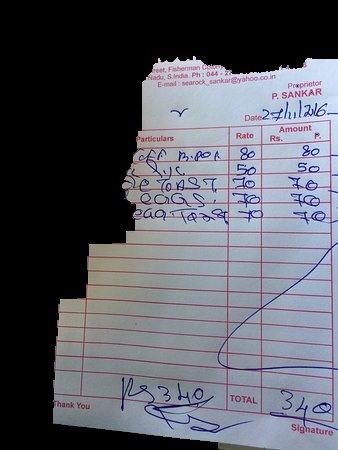 Street, Fisherman Colony
Nadu, S.India. Ph : 044 - 2
E-mail : searock_sankar@yahoo.co.in
Proprietor
P. SANKAR
Date 27/11/2016
Particulars Rate Amount
Rs. P.
80 80
50 50
TOAST 70 70
EGGS. 70 70
TOAST 70 70
Rs 340 TOTAL 340
Thank You Signature